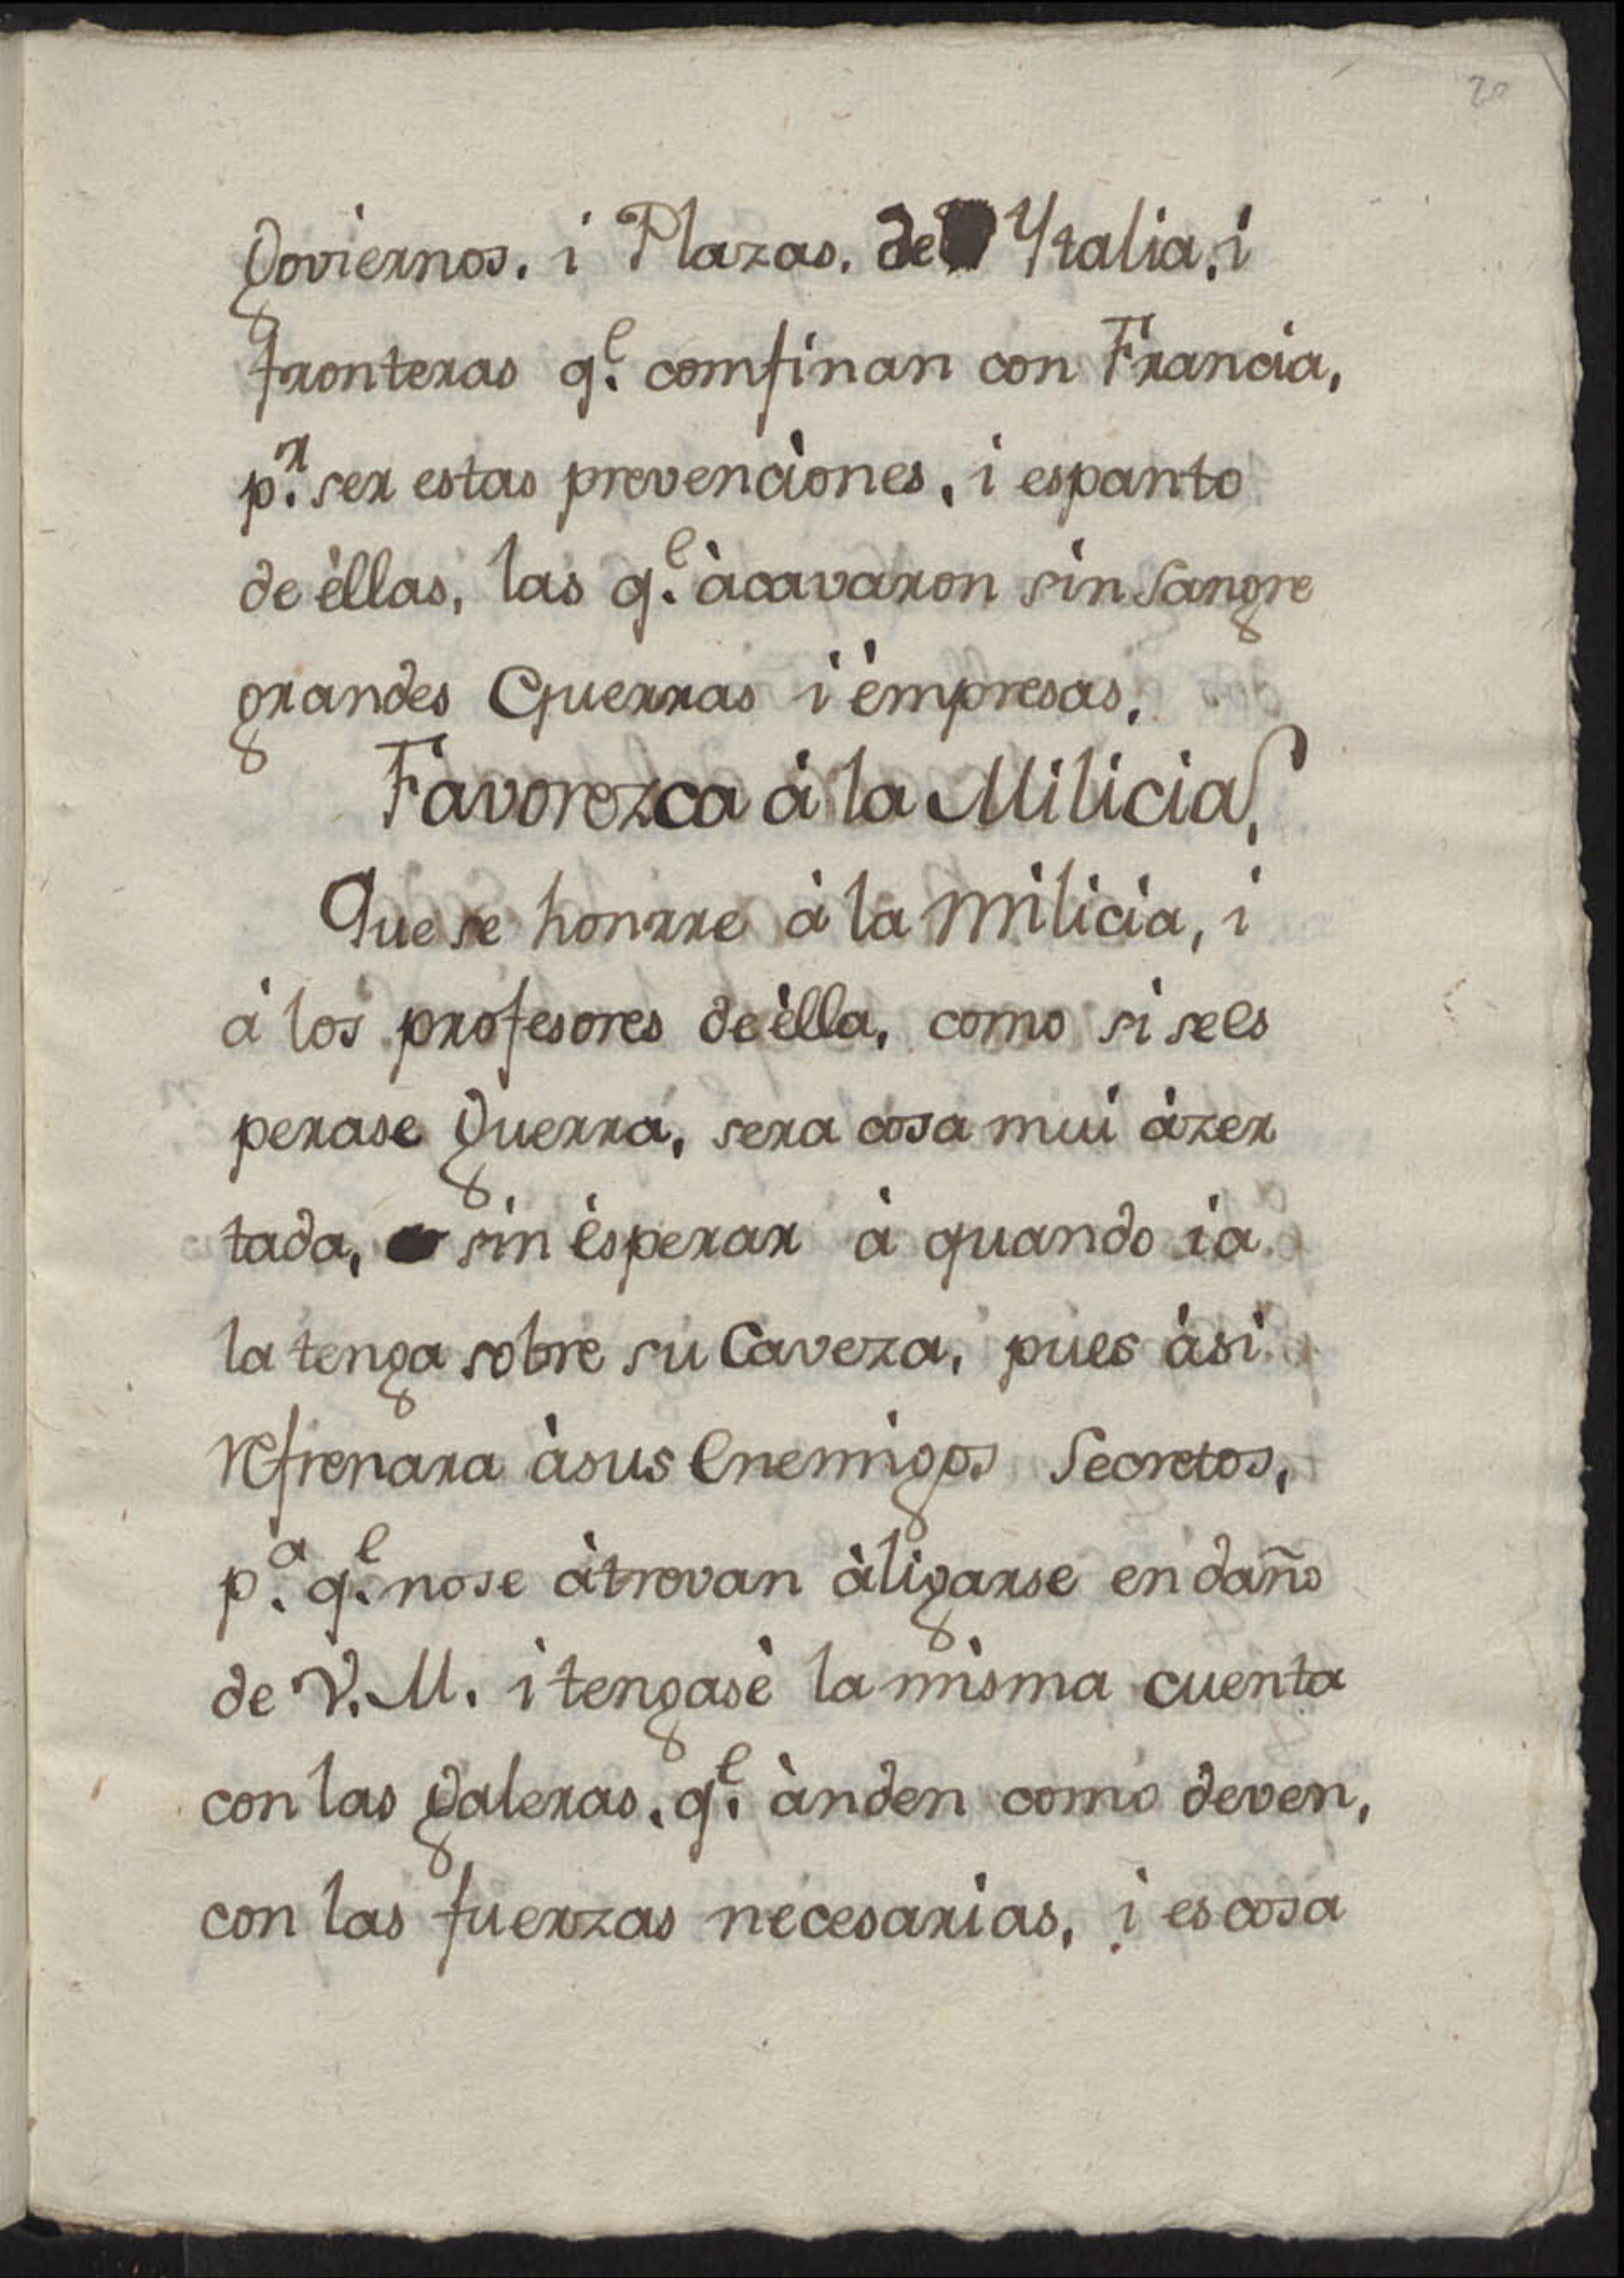 20
Goviernos. i Plazas. de Ytalia, i
fronteras q.e comfinan con Francia,
p.r ser estas prevenciones, i espanto
de èllas, las q.e àcavaron sin Sangre
grandes Guerras i èmpresas.
Favorezca à la Milicia.
Que se honrre à la Milicia, i
à los profesores de èlla, como si se es
perase Guerra, sera cosa mui àzer
tada, sin èsperar à quando ia
la tenga sobre su Caveza, pues àsi
refrenara à sus Enemigos Secretos,
p.a q.e no se àtrevan àligarse en daño
de V. M. i tengasè la misma cuenta
con las Galeras, q.e ànden como deven,
con las fuerzas necesarias, i es cosa